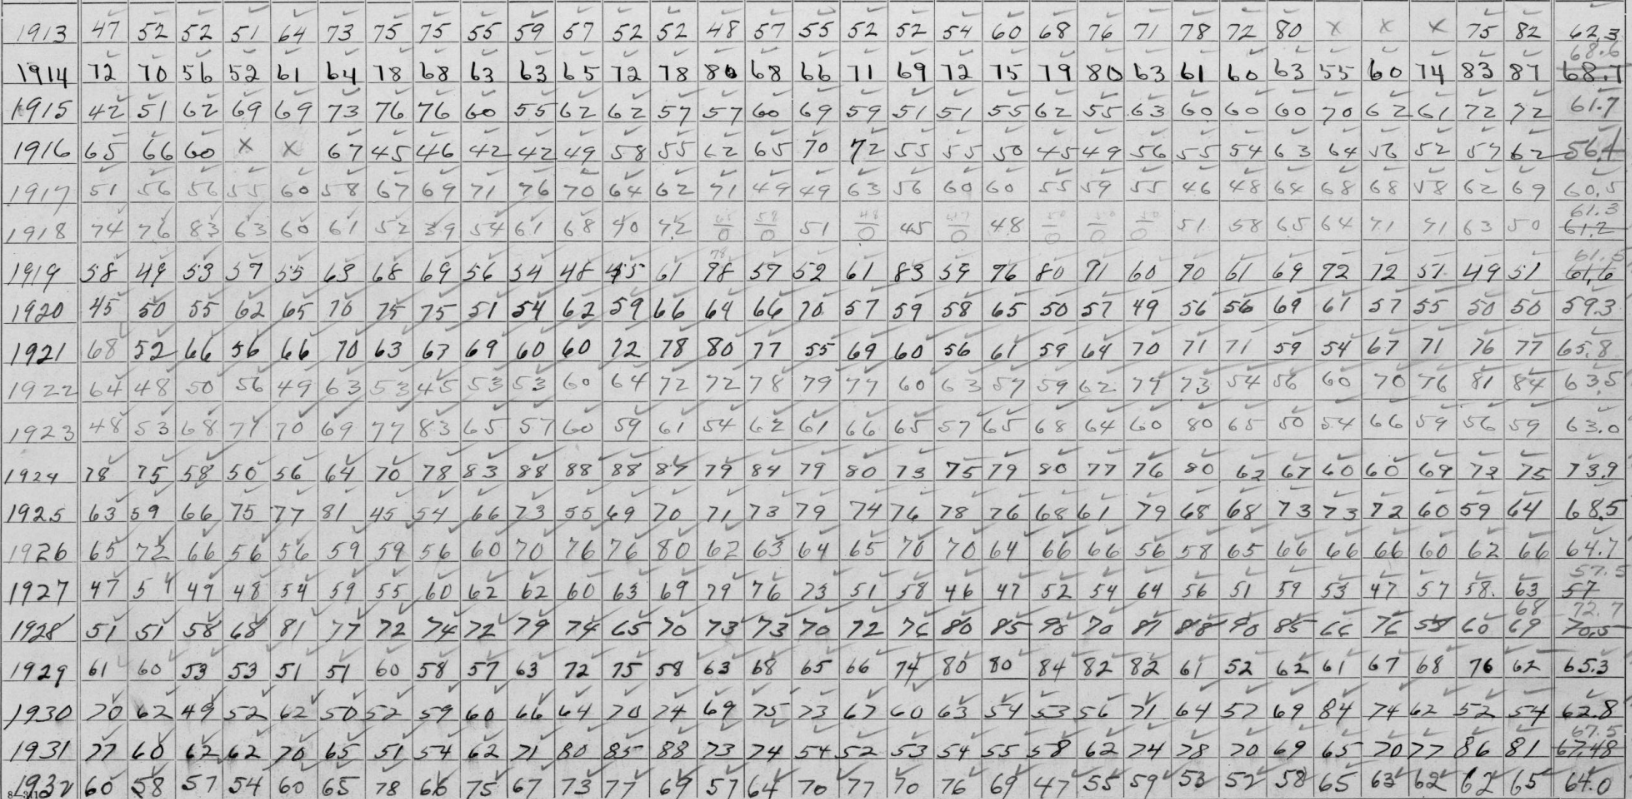 1913 47 52 52 51 64 73 75 75 55 59 57 52 52 48 57 55 52 52 54 60 68 76 71 78 72 80 x x x 75 82 62.3
68.6
1914 72 70 56 52 61 64 78 68 63 63 65 72 78 80 68 66 71 69 72 75 79 80 63 61 60 63 55 60 74 83 87 68.7
1915 42 51 62 69 69 73 76 76 60 55 62 62 57 57 60 69 59 51 51 55 62 55 63 60 60 60 70 62 61 72 72 61.7
1916 65 66 60 x x 67 45 46 42 42 49 58 55 62 65 70 72 55 55 50 45 49 56 55 54 63 64 56 52 57 62 56.4
1917 51 56 56 55 60 58 67 69 71 76 70 64 62 71 49 49 63 56 60 60 55 59 55 46 48 64 68 68 58 62 69 60.5
61.3
1918 74 76 83 63 60 61 52 39 54 61 68 70 72 0 0 51 0 45 0 48 0 0 0 51 58 65 64 71 71 63 50 61.2
1919 58 49 53 57 55 63 68 69 56 54 48 45 61 78 57 52 61 83 59 76 80 71 60 70 61 69 72 72 57 49 51 61.6
1920 45 50 55 62 65 70 75 75 51 54 62 59 66 64 66 70 57 59 58 65 50 57 49 56 56 69 61 57 55 50 50 59.3
1921 68 52 66 56 66 70 63 67 69 60 60 72 78 80 77 55 69 60 56 61 59 64 70 71 71 59 54 67 71 76 77 65.8
1922 64 48 50 56 49 63 53 45 53 53 60 64 72 72 78 79 77 60 63 57 59 62 79 73 54 56 60 70 76 81 84 63.5
1923 48 53 68 71 70 69 77 83 65 57 60 59 61 54 62 61 66 65 57 65 68 64 60 80 65 50 54 66 59 56 59 63.0
1924 78 75 58 50 56 64 70 78 83 88 88 88 87 79 84 79 80 73 75 79 80 77 76 80 62 67 60 60 69 72 75 73.9
1925 63 59 66 75 77 81 45 54 66 73 55 69 70 71 73 79 74 76 78 76 68 61 79 68 68 73 73 72 60 59 64 68.5
1926 65 72 66 56 56 59 59 56 60 70 76 76 80 62 63 64 65 70 70 64 66 66 56 58 65 66 66 66 60 62 66 64.7
57.5
1927 47 5 49 48 54 59 55 60 62 62 60 63 69 79 76 73 51 58 46 47 52 54 64 56 51 59 53 47 57 58. 63 57
68 72.7
1928 51 51 58 68 81 77 72 74 72 79 74 65 70 73 73 70 72 76 80 85 90 70 87 88 90 85 66 76 55 60 69 70.5
1929 61 60 53 53 51 51 60 58 57 63 72 75 58 63 68 65 66 74 80 80 84 82 82 61 52 62 61 67 68 76 62 65.3
1930 70 62 49 52 62 50 52 59 60 66 64 70 74 69 75 73 67 60 63 54 53 56 71 64 57 69 84 74 62 52 54 62.8
67.5
1931 77 60 62 62 70 65 51 54 62 71 80 85 88 73 74 54 52 53 54 55 58 62 74 78 70 69 65 70 77 86 81 67.48
1932 60 58 57 54 60 65 78 66 75 67 73 77 69 57 64 70 77 70 76 69 47 55 59 53 52 58 65 63 62 62 65 64.0